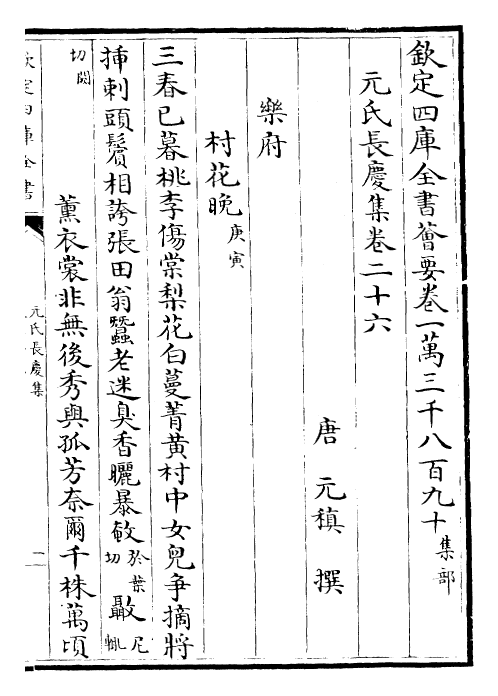 欽定四庫全書薈要卷一萬三千八百九十集部
元氏長慶集卷二十六
唐元稹撰
樂府
村花晚庚寅
三春已暮桃李傷棠梨花白蔓菁黃村中女兒爭摘將
揷刺頭鬢相誇張田翁蠶老迷臭香曬暴𢾇於葉切𣀳尼輒
切闕
薰衣裳非無後秀與孤芳奈爾千株萬頃
欽定四庫全書
元氏長慶集